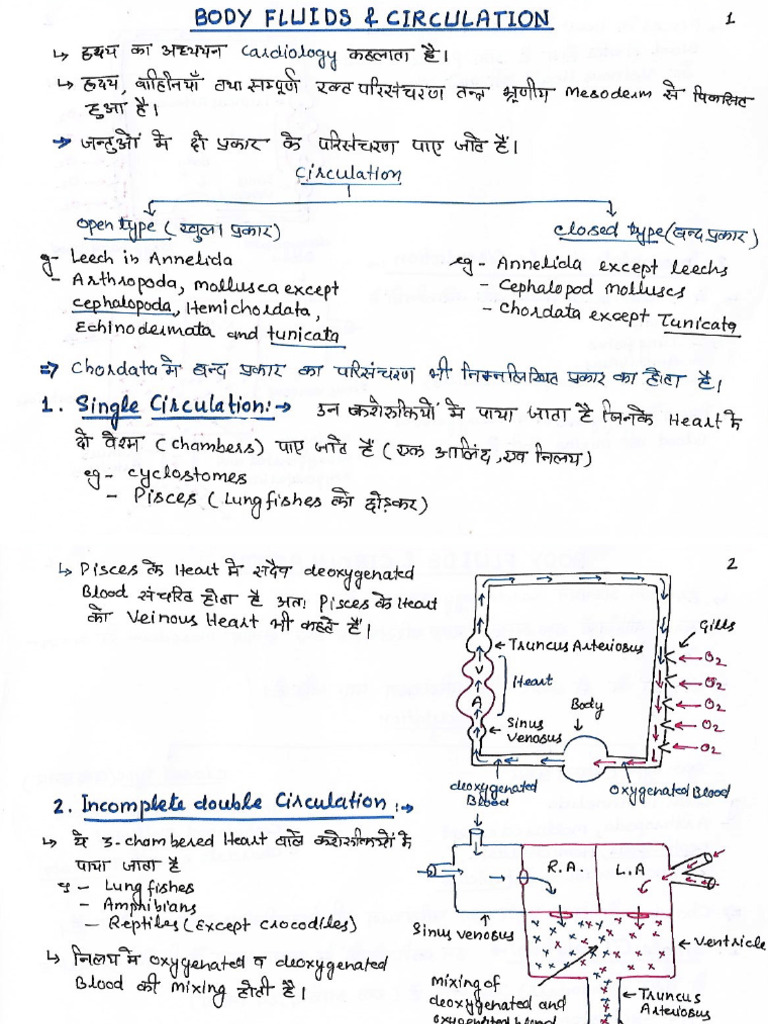 BODY FLUIDS & CIRCULATION
1
↳ हृदय का अध्ययन Cardiology कहलाता है।
↳ हृदय, वाहिनियाँ तथा सम्पूर्ण रक्त परिसंचरण तन्त्र भ्रूणीय Mesoderm से विकसित
हुआ है।
→ जन्तुओं मे दो प्रकार के परिसंचरण पाए जाते हैं।
Circulation
open type (खुला प्रकार)
eg- Leech in Annelida
- Arthropoda, mollusca except
cephalopoda, Hemichordata,
Echinodermata and tunicata
closed type (बन्द प्रकार)
eg - Annelida except leechs
- Cephalopod molluscs
- Chordata except Tunicata
⇒ Chordata मे बन्द प्रकार का परिसंचरण भी निम्नलिखित प्रकार का होता है।
1. Single Circulation:→ उन कशेरुकियों मे पाया जाता है जिनके Heart मे
दो वेश्म (chambers) पाए जाते हैं (एक आलिंद, एक निलय)
eg - cyclostomes
- Pisces (Lungfishes को छोड़कर)
2
↳ Pisces के Heart मे सदैव deoxygenated
Blood संचरित होता है अतः Pisces के Heart
को Veinous Heart भी कहते हैं।
Truncus Arteriosus
V
Heart
A
Sinus
venosus
Body
Gills
O2
O2
O2
O2
O2
deoxygenated
Blood
oxygenated Blood
2. Incomplete double Circulation:→
↳ ये 3-chambered Heart वाले कशेरुकियों मे
पाया जाता है
eg - Lungfishes
- Amphibians
- Reptiles (Except crocodiles)
↳ निलय मे oxygenated व deoxygenated
Blood की mixing होती है।
R.A.
L.A
Sinus venosus
Ventricle
mixing of
deoxygenated and
oxygenated blood
Truncus
Arteriosus